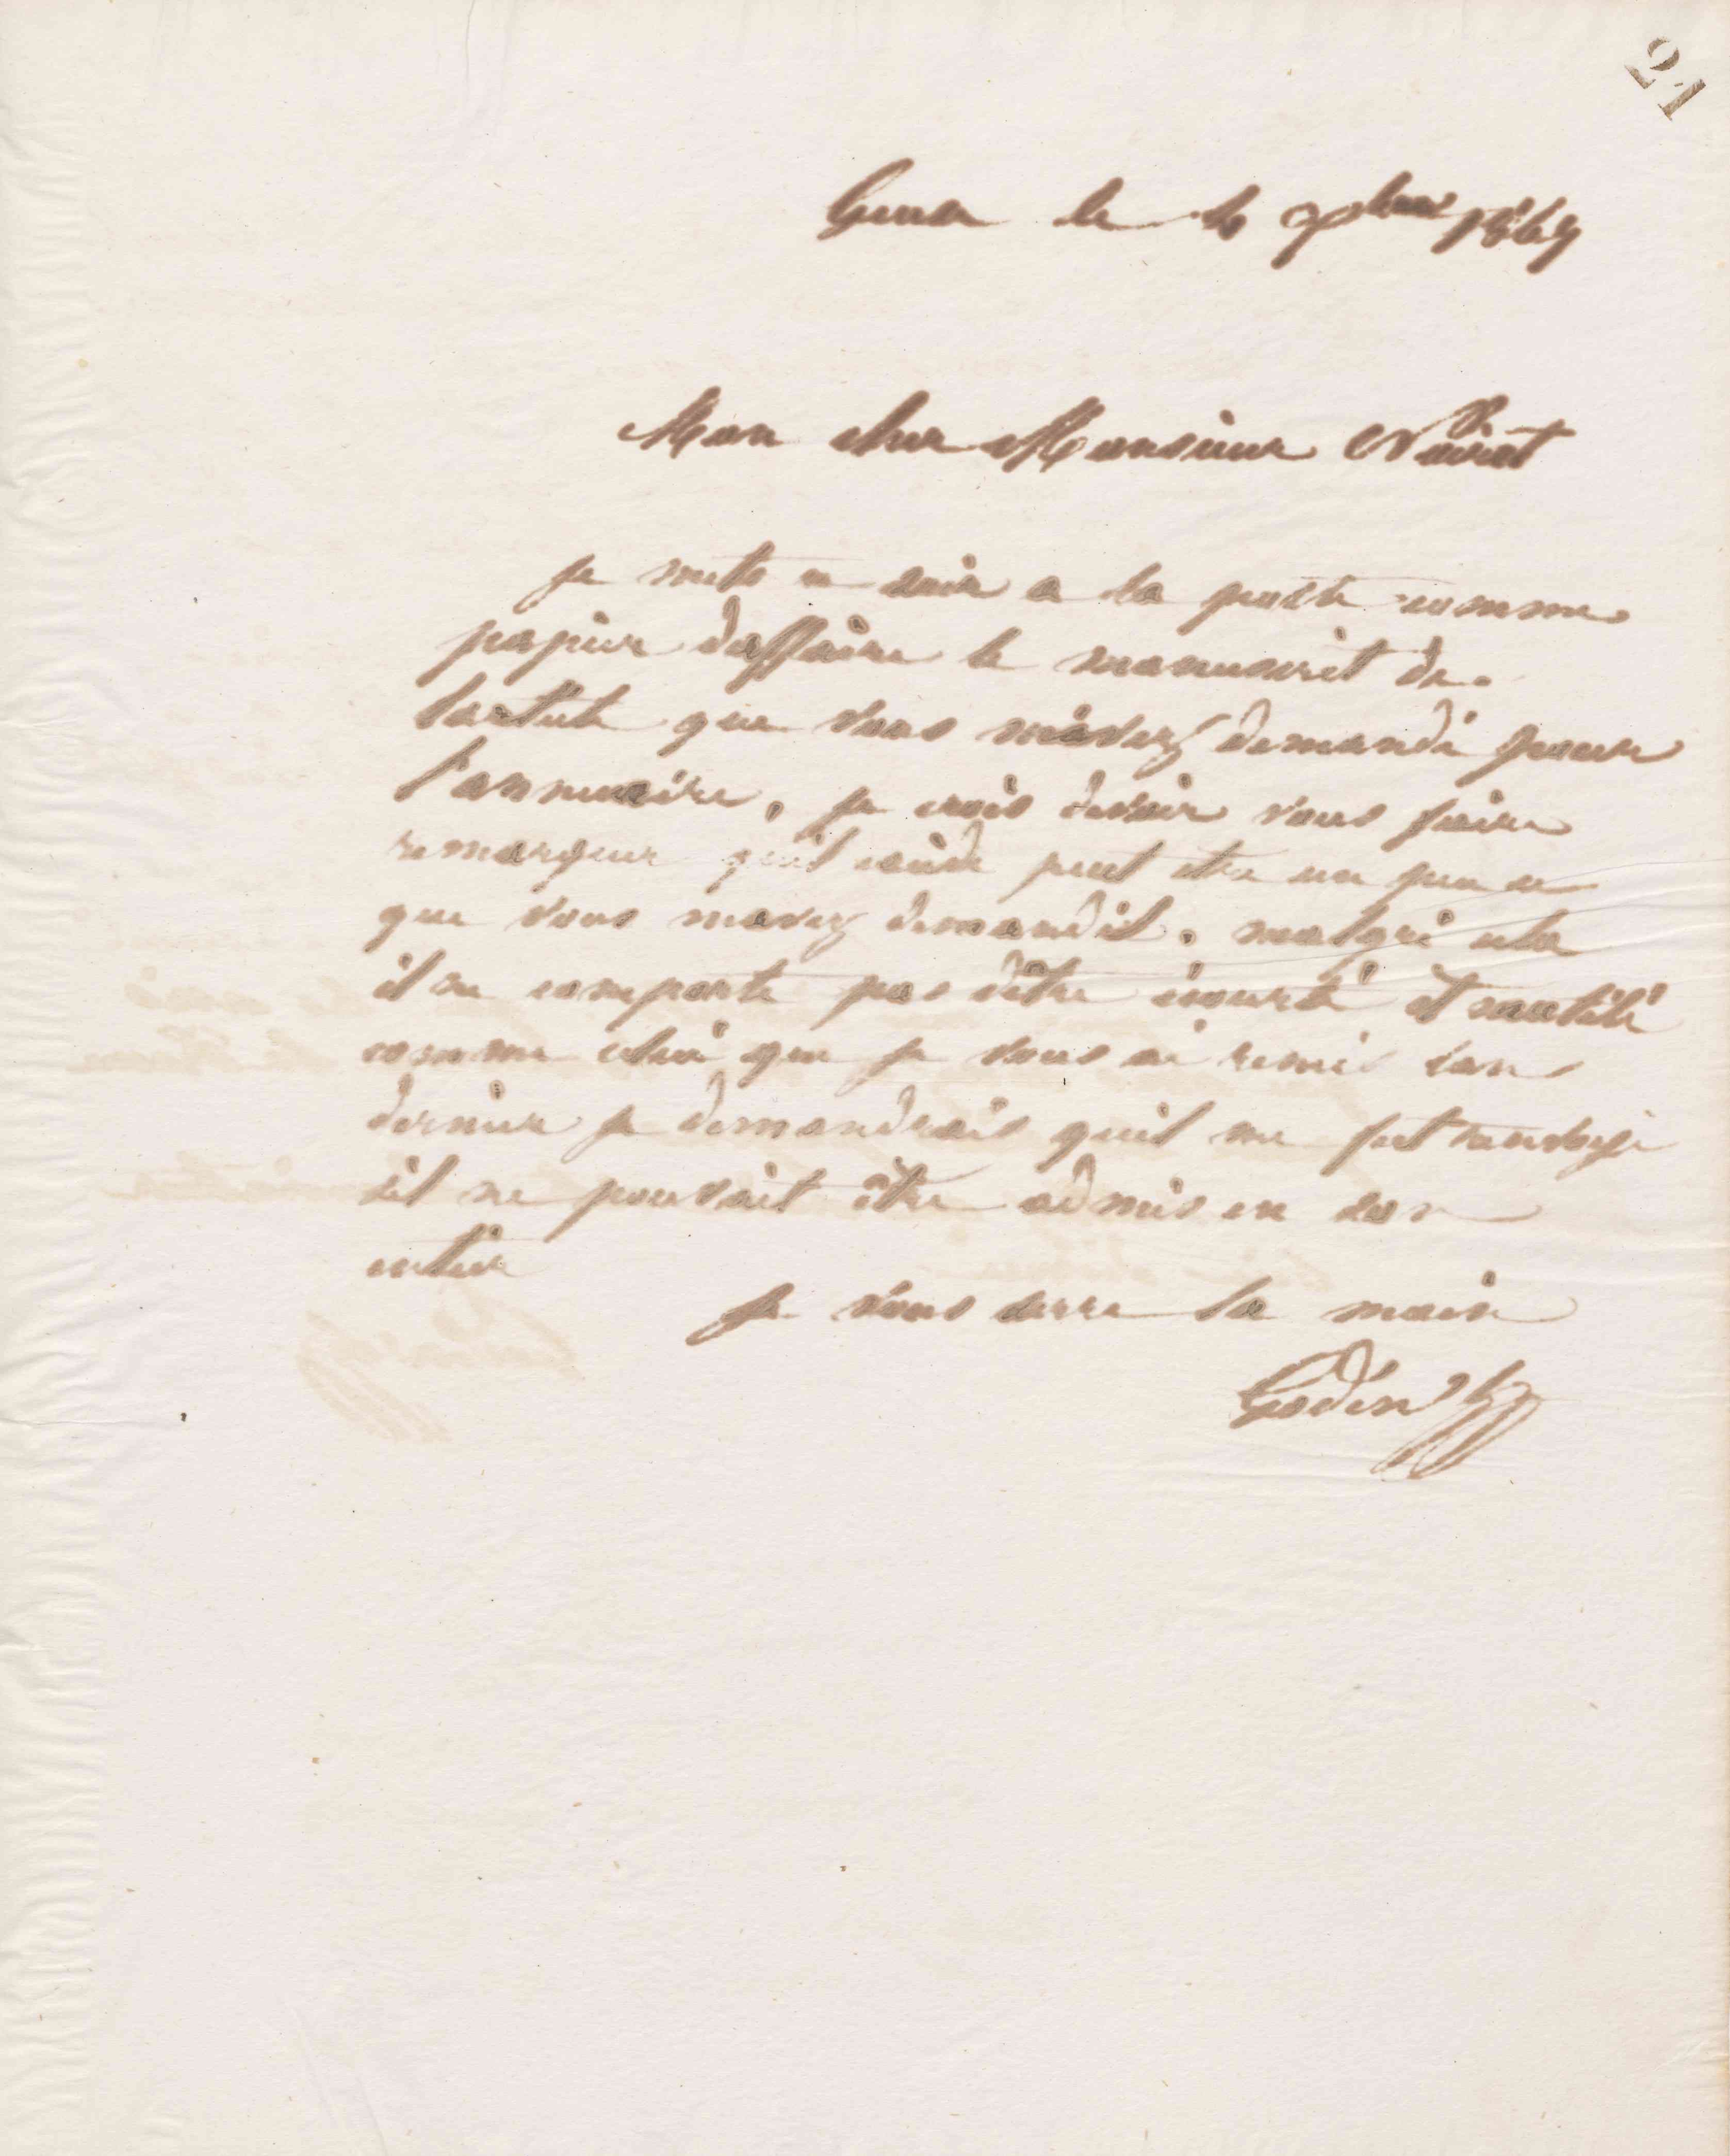 21
Guise le 4 7bre 1869
Mon cher Monsieur Noirot
je mets ce soir a la poste comme
papier daffaire le manuscrit de
larticle que vous mavez demandé pour
l'annuaire, je crois devoir vous faire
remarquer qu'il excède peut etre un peu ce
que vous mavez demandé. malgré cela
il ne comporte pas d'être écourté et mutilé
comme celui que je vous ai remis lan
dernier je demanderais quil me fut renvoyé
sil ne pouvait être admis en son
entier
je vous serre la main
Godin